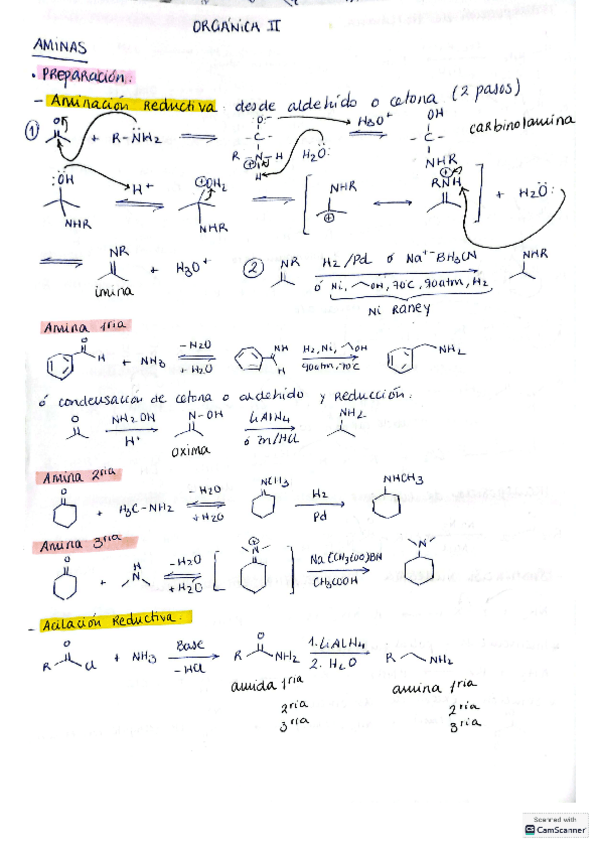 ORGÁNICA II
AMINAS
• PREPARACIÓN:
- Aminación Reductiva: desde aldehído o cetona (2 pasos)
① O + R-NH2 ⇌ O⁻ -C- R-N⊕-H H H2Ö: H3O⁺ ⇌ OH -C- NHR carbinolamina
:ÖH NHR H⁺ ⇌ ⊕OH2 NHR ⇌ [ NHR ⊕ ↔ RN⊕H ] + H2Ö:
⇌ NR + H3O⁺ ② NR H2/Pd ó Na⁺⁻BH3CN NHR
imina ó Ni, OH, 70°C, 90atm, H2
Ni Raney
Amina 1ria
O H + NH3 -H2O ⇌ +H2O NH H H2, Ni, OH 90atm, 70°C NH2
ó condensación de cetona o aldehído y Reducción:
O NH2OH H⁺ N-OH LiAlH4 ó Zn/HCl NH2
oxima
Amina 2ria
O + H3C-NH2 -H2O ⇌ +H2O NCH3 H2 Pd NHCH3
Amina 3ria
O + H N -H2O ⇌ +H2O [ ⊕ N ] Na(CH3COO)BH CH3COOH N
- Acilación Reductiva:
R O Cl + NH3 Base -HCl R O NH2 1. LiAlH4 2. H2O R NH2
amida 1ria amina 1ria
2ria 2ria
3ria 3ria
Scanned with
CS CamScanner